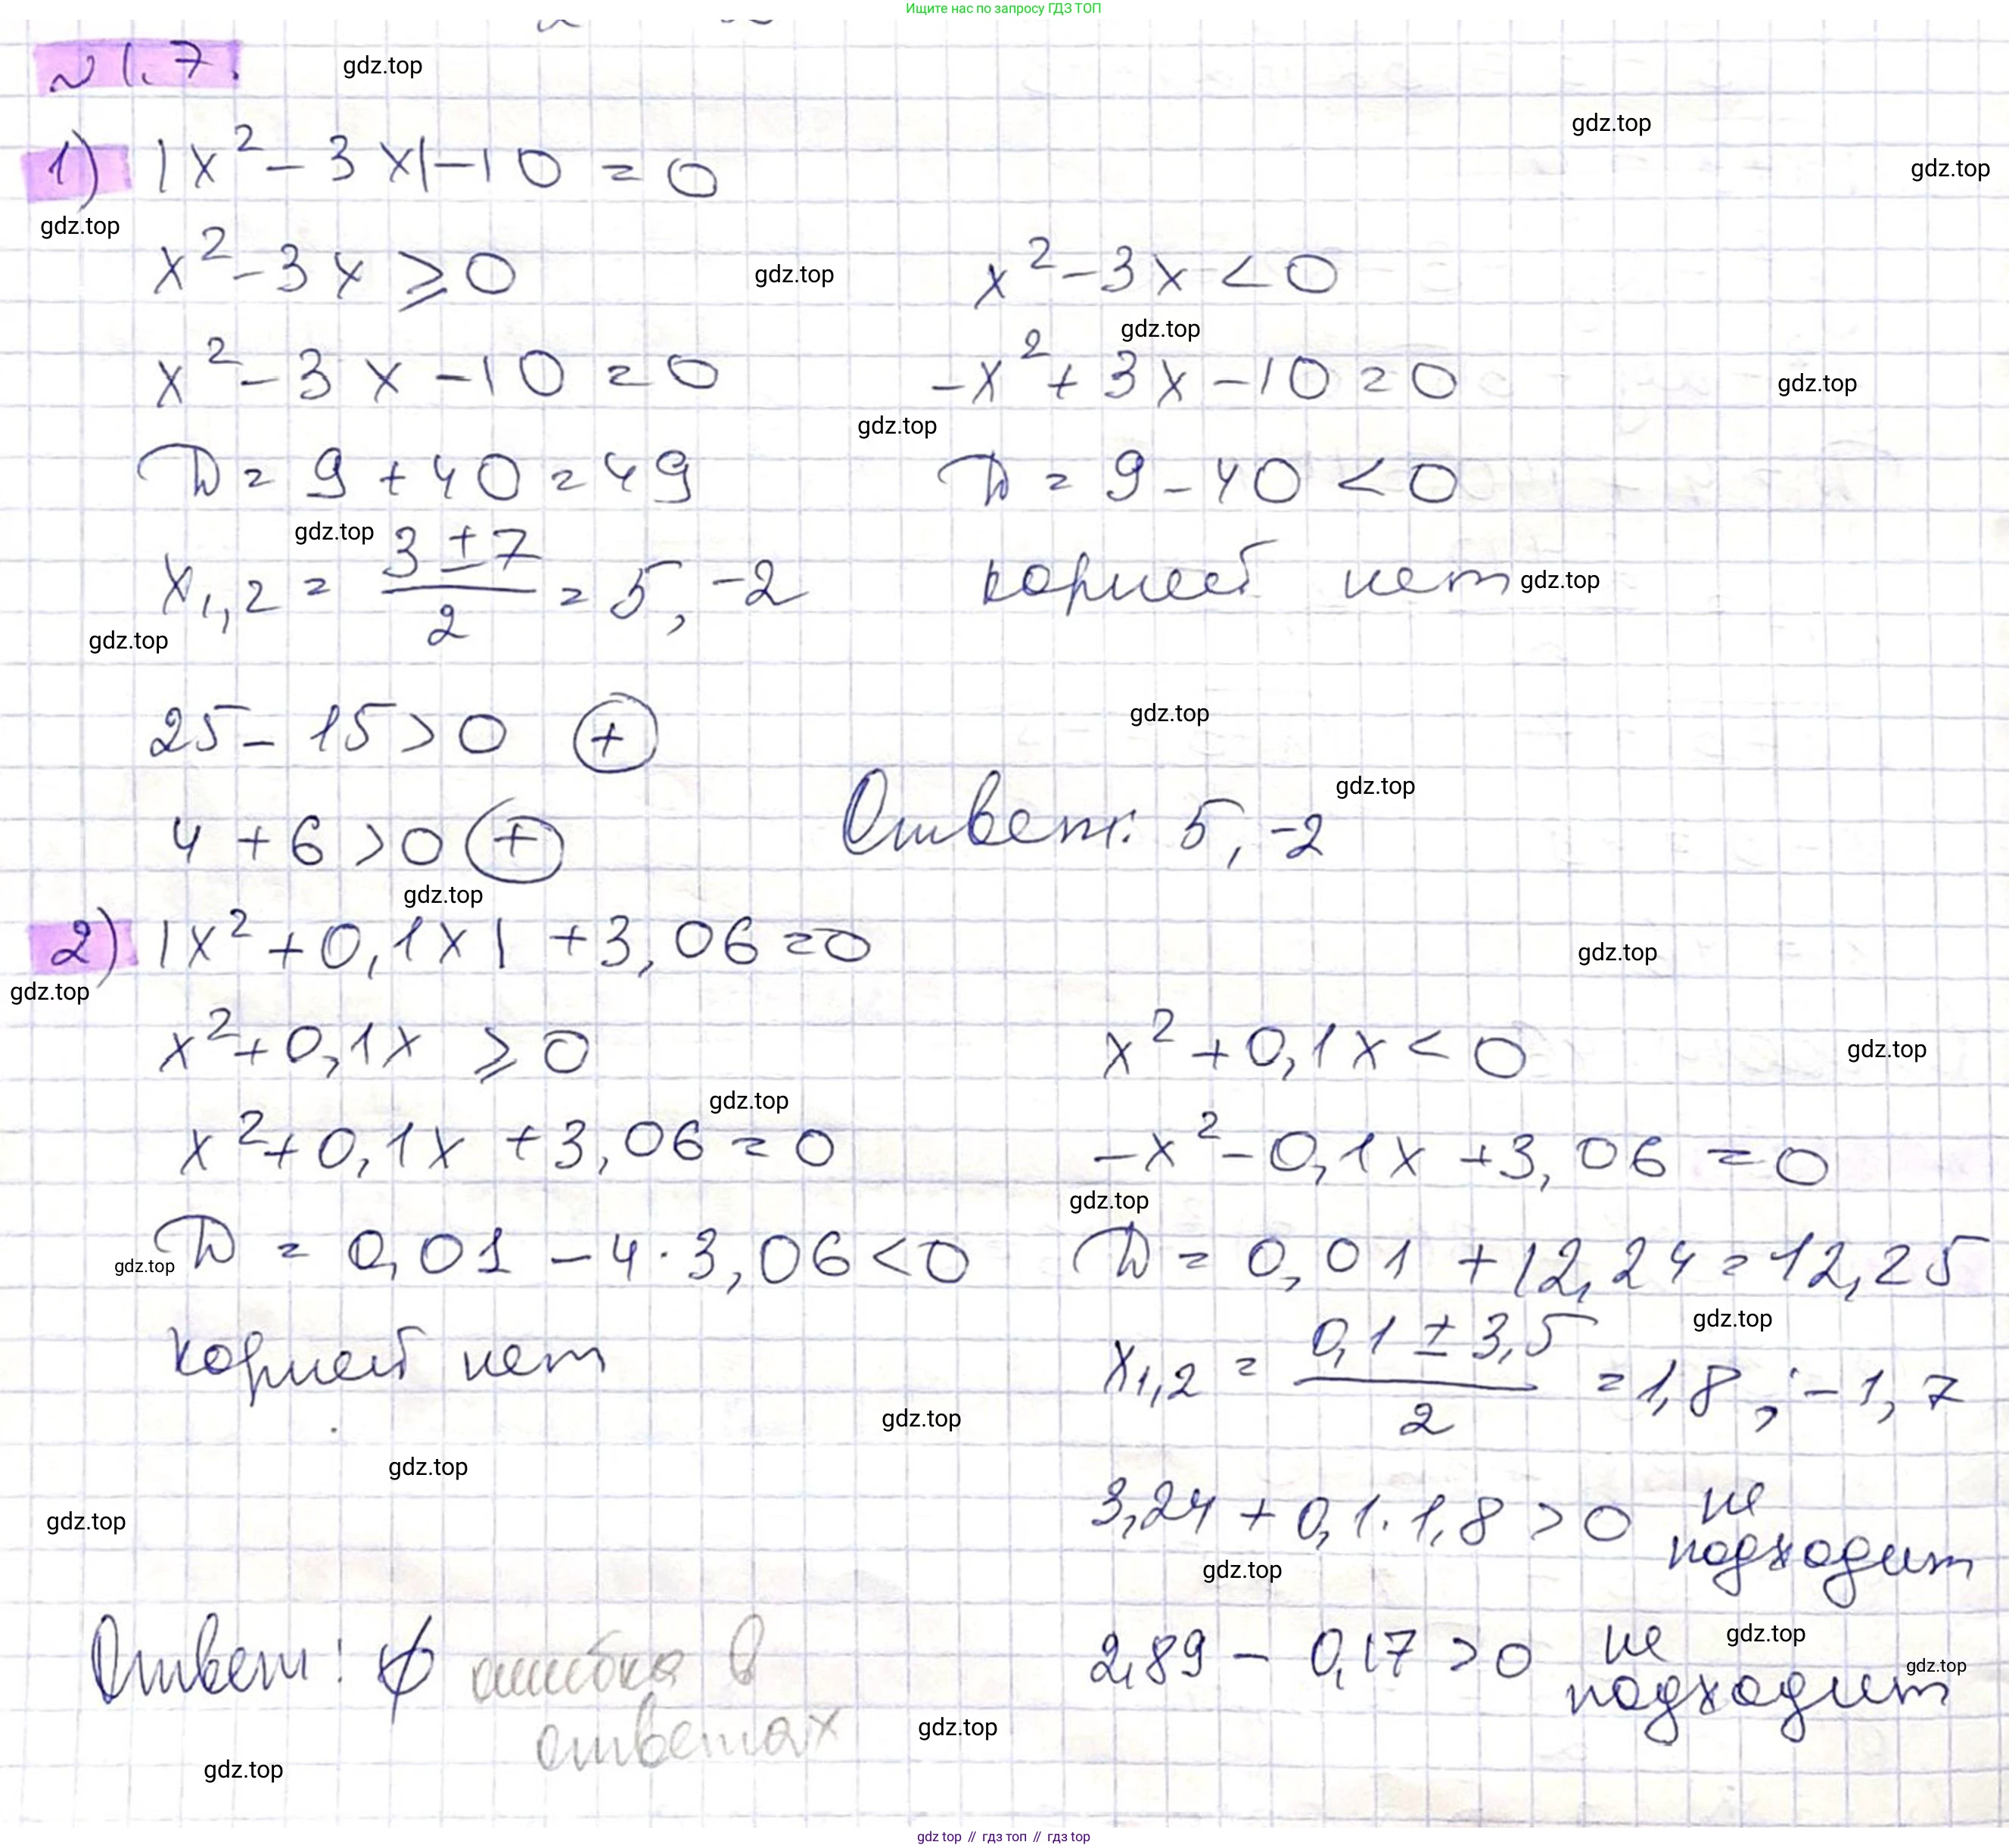 Ищите нас по запросу ГДЗ ТОП
№ 1.7.
gdz.top
gdz.top
1) |x² - 3x| - 10 = 0
gdz.top
gdz.top
x² - 3x ⩾ 0
gdz.top
x² - 3x < 0
gdz.top
x² - 3x - 10 = 0
-x² + 3x - 10 = 0
gdz.top
gdz.top
D = 9 + 40 = 49
D = 9 - 40 < 0
gdz.top
x₁,₂ = (3 ± 7)/2 = 5, -2
корней нет
gdz.top
gdz.top
25 - 15 > 0 ⊕
gdz.top
gdz.top
4 + 6 > 0 ⊕
Ответ: 5, -2
gdz.top
2) |x² + 0,1x| + 3,06 = 0
gdz.top
gdz.top
x² + 0,1x ⩾ 0
x² + 0,1x < 0
gdz.top
gdz.top
x² + 0,1x + 3,06 = 0
-x² - 0,1x + 3,06 = 0
gdz.top
gdz.top
D = 0,01 - 4·3,06 < 0
D = 0,01 + 12,24 = 12,25
gdz.top
корней нет
x₁,₂ = (0,1 ± 3,5)/2 = 1,8 ; -1,7
gdz.top
gdz.top
gdz.top
3,24 + 0,1·1,8 > 0 не подходит
gdz.top
Ответ: ∅ ошибка в ответах
2,89 - 0,17 > 0 не подходит
gdz.top
gdz.top
gdz.top
gdz.top
gdz top // гдз топ // гдз top